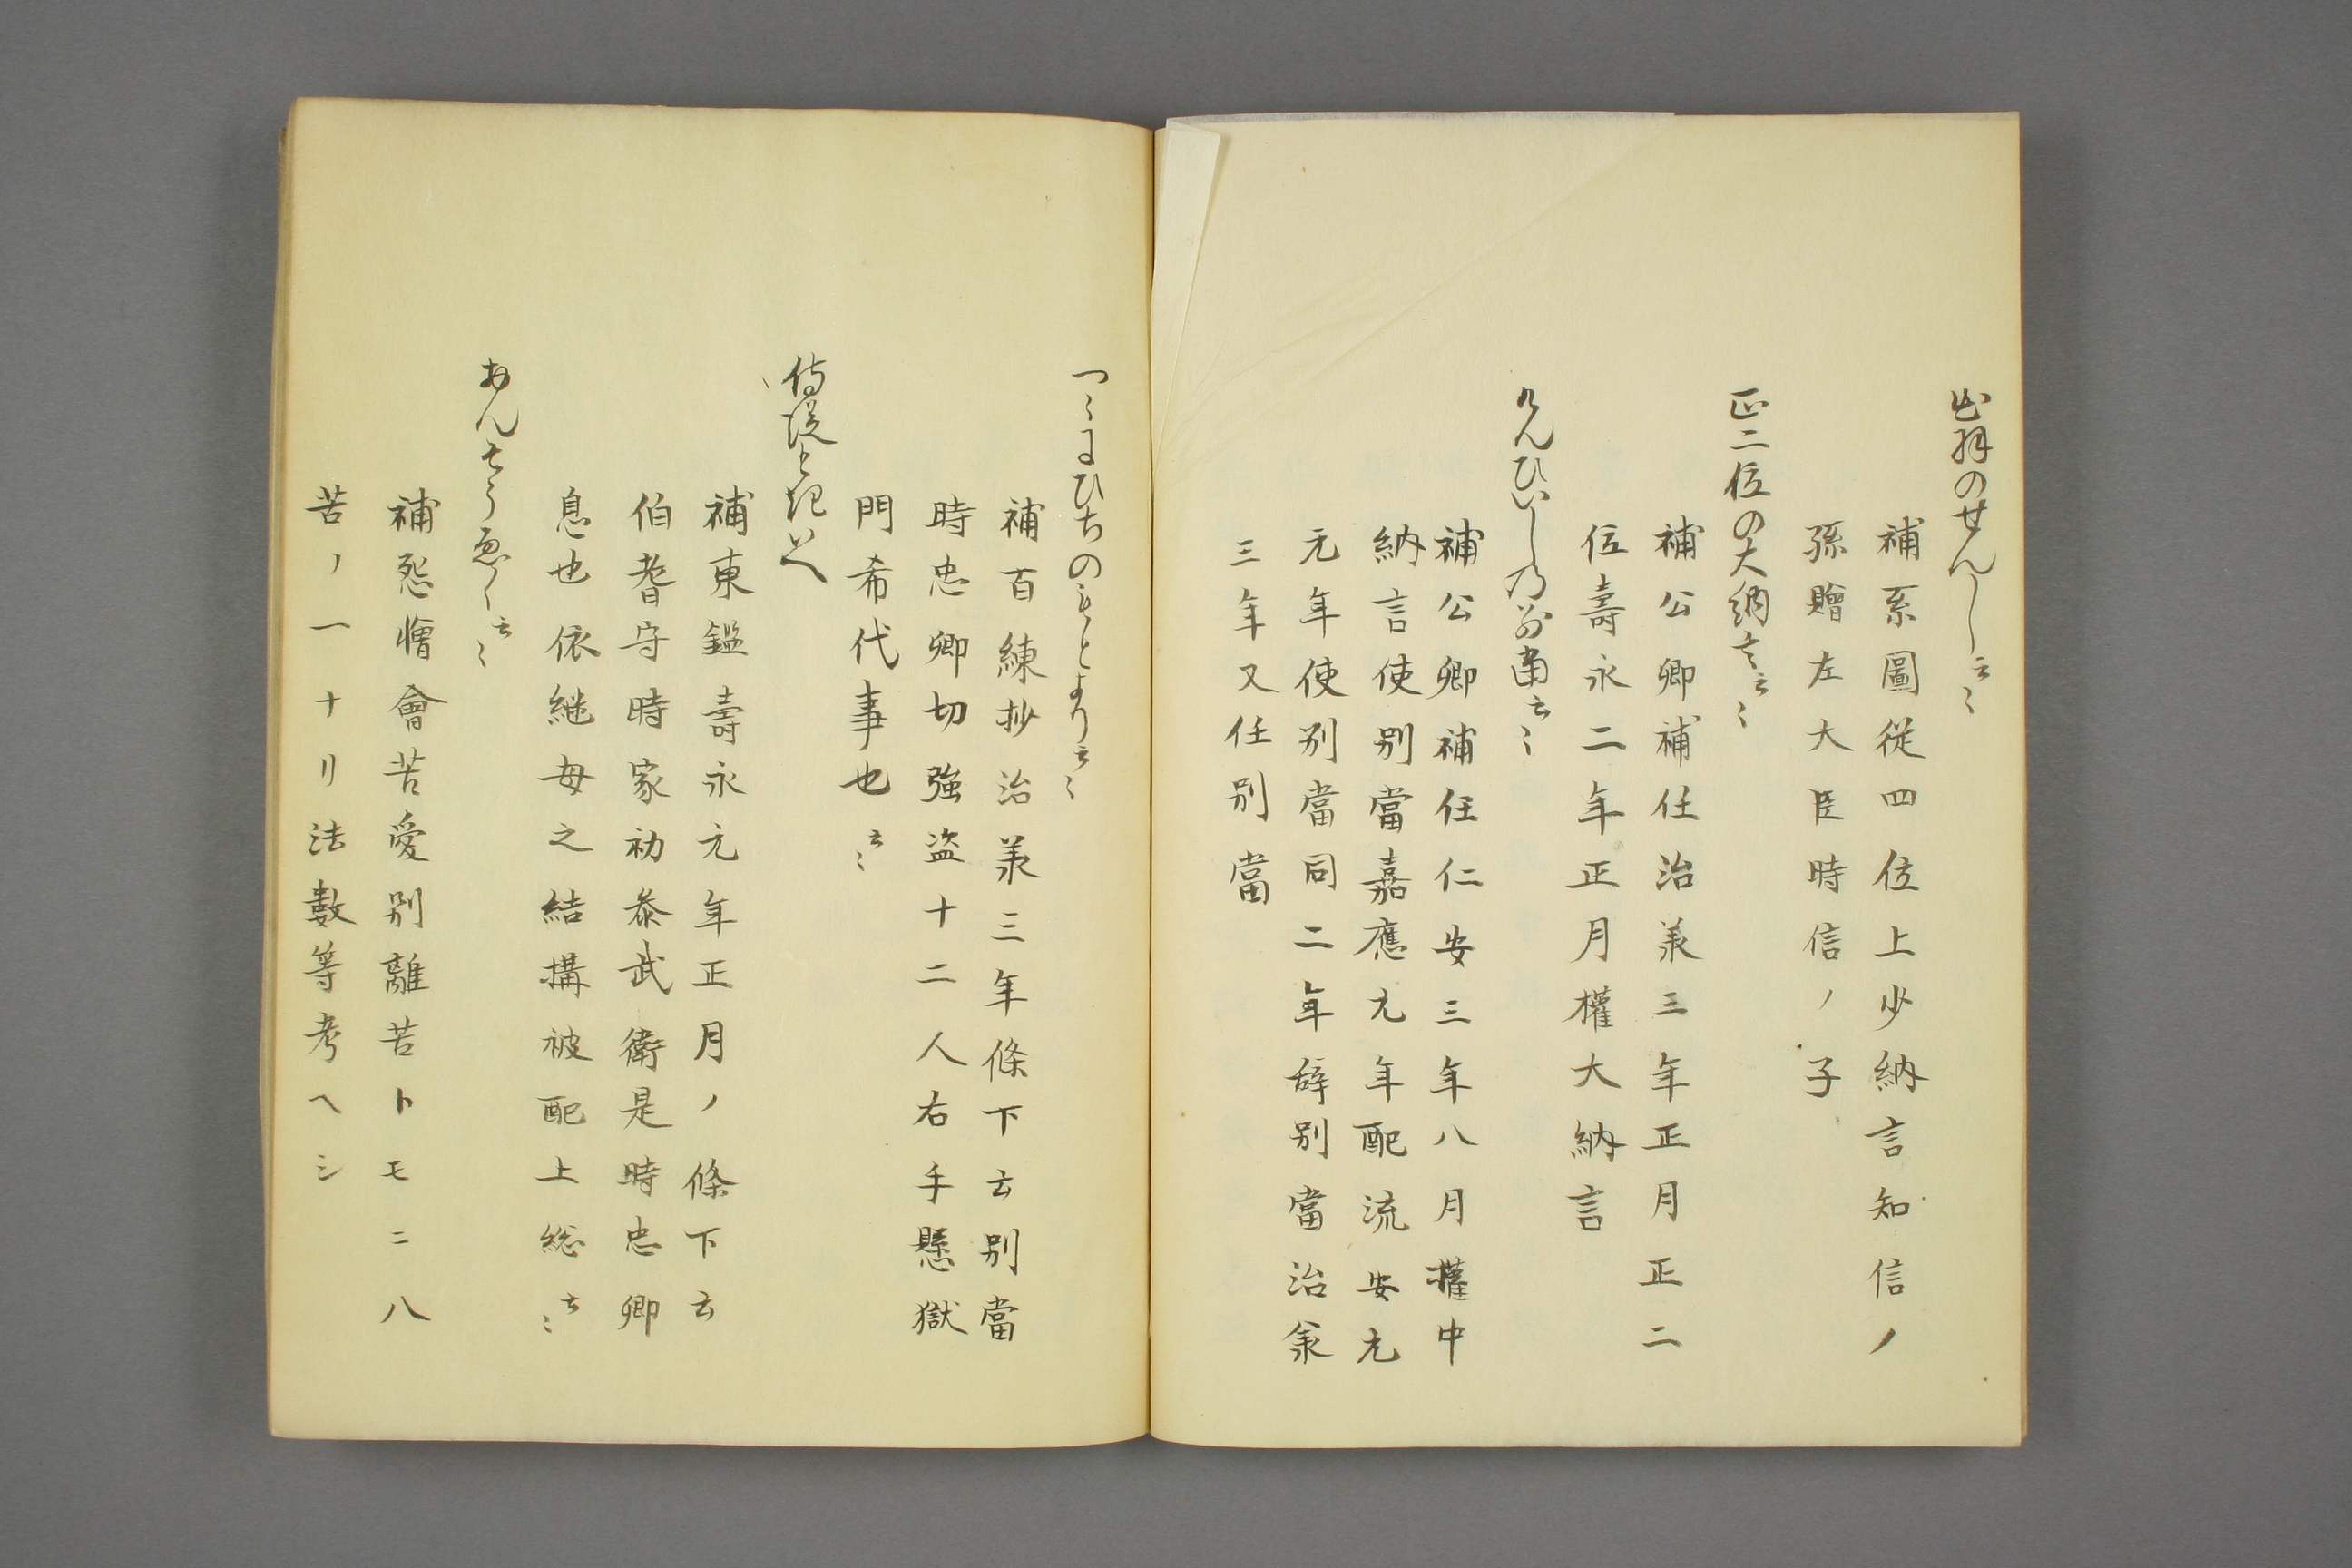 出羽のせんし云〻
補系圖従四位上少納言知信ノ
孫贈左大臣時信ノ子
正二位の大納言云〻
補公卿補任治義三年正月正二
位壽永二年正月權大納言
けんひいしの別當云〻
補公卿補任仁安三年八月權中
納言使別當嘉應元年配流安元
元年使別當同二年辞別當治義
三年又任別當
一〻にひちのもとより云〻
補百練抄治義三年條下云別當
時忠卿切強盗十二人右手懸獄
門希代事也云〻
侍従と記へ
補東鑑壽永元年正月ノ條下云
伯耆守時家初参武衛是時忠卿
息也依継母之結構被配上総云〻
おんそうゑく云〻
補怨憎會苦愛別離苦トモニ八
苦ノ一ナリ法數等考ヘシ